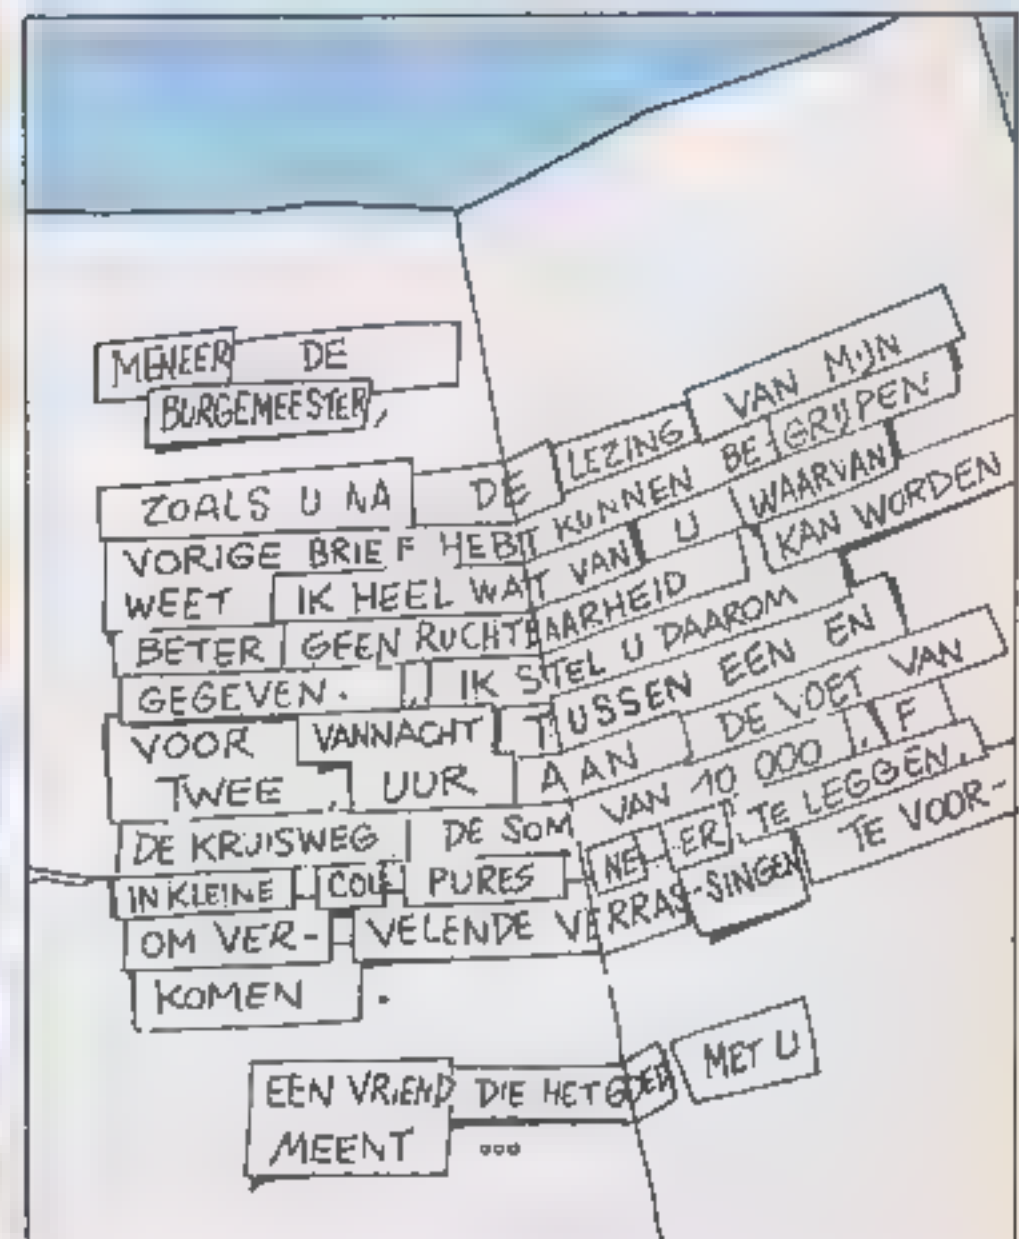 MENEER DE
BURGEMEESTER,
ZOALS U NA DE LEZING VAN MIJN
VORIGE BRIEF HEBT KUNNEN BEGRIJPEN
WEET IK HEEL WAT VAN U WAARVAN
BETER GEEN RUCHTBAARHEID KAN WORDEN
GEGEVEN. IK STEL U DAAROM
VOOR VANNACHT TUSSEN EEN EN
TWEE UUR AAN DE VOET VAN
DE KRUISWEG DE SOM VAN 10 000 F
IN KLEINE COUPURES NEER TE LEGGEN,
OM VER-VELENDE VERRAS-SINGEN TE VOOR-
KOMEN.
EEN VRIEND DIE HET GOED MET U
MEENT ...